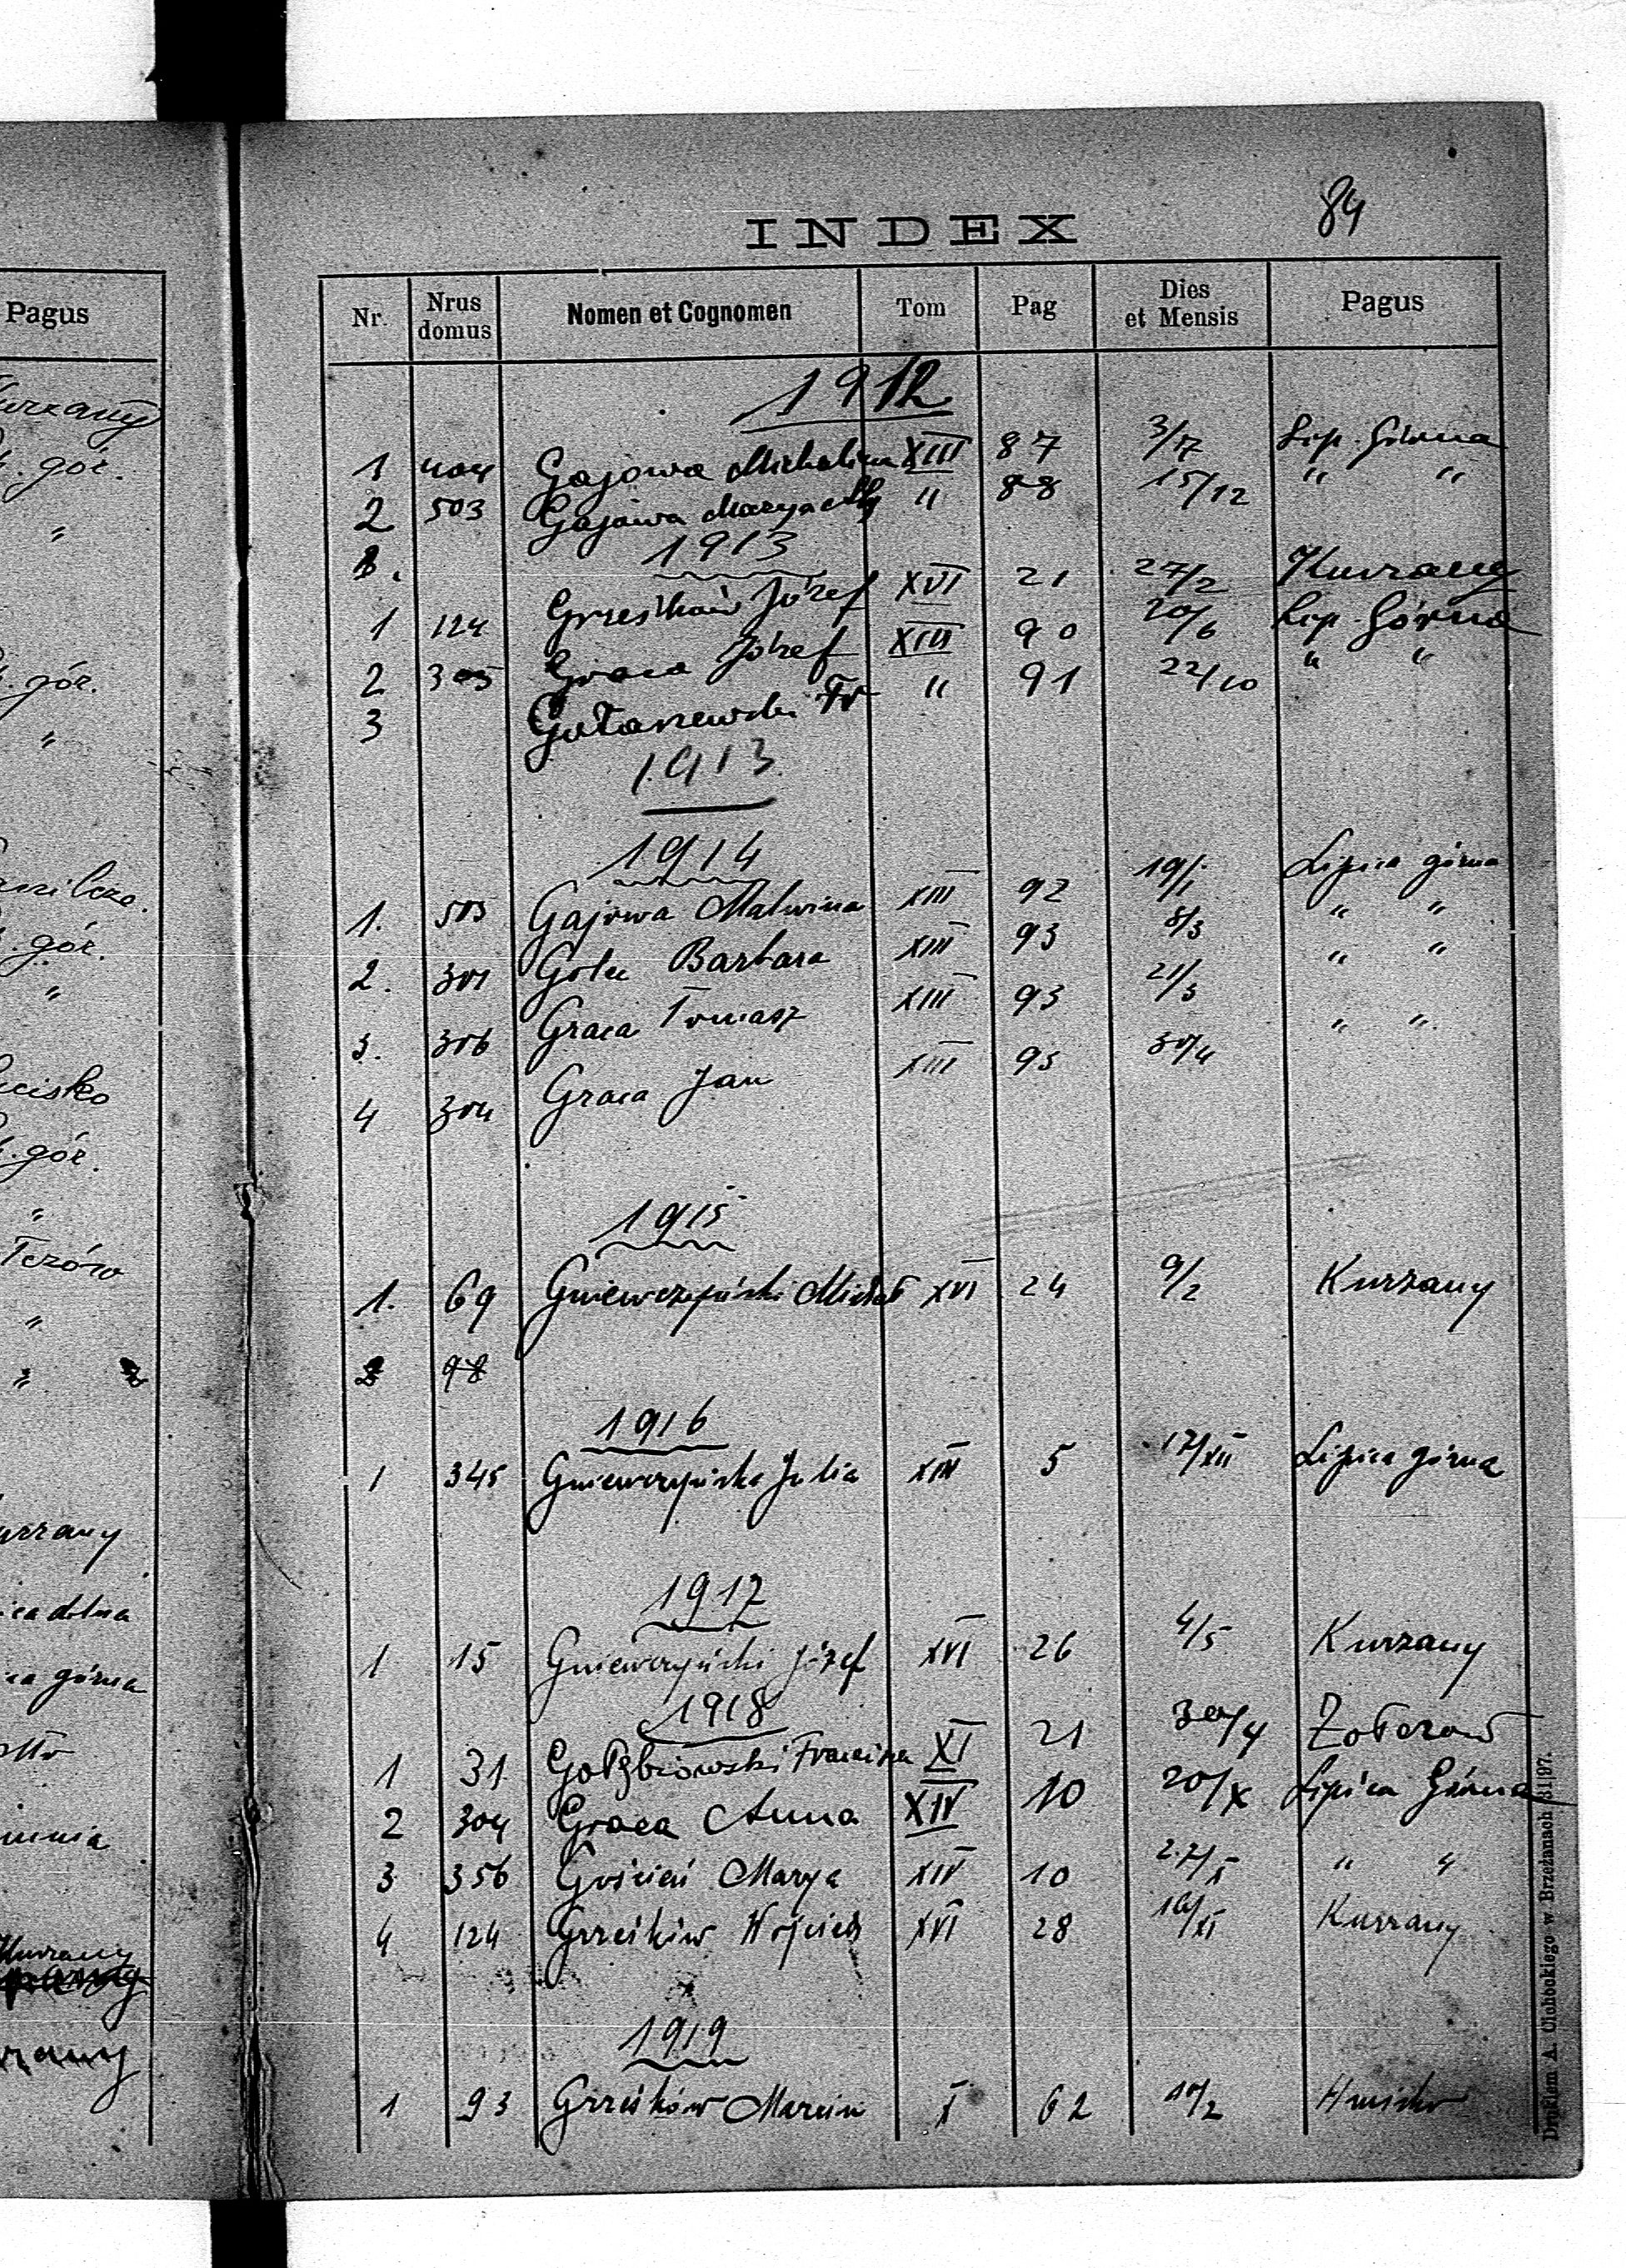 Pagus
Kurzany
gór.
"
gór.
"
gór.
"
gór.
"
"
"
84
INDEX
Nr. Nrus domus Nomen et Cognomen Tom Pag Dies et Mensis Pagus
1912
1 404 Gajowa Michalina XIII 87 3/7 Lip. Górna
2 503 Gajowa Marya XIII 88 15/12 " "
1913
1 124 Grześków Józef XVI 21 27/2 Kurzany
2 305 Graca Józef XIII 90 20/6 Lip. Górna
3 Gołaszewski Fr " 91 22/10 " "
1913
1914
1. 503 Gajowa Malwina XIII 92 19/1 Lipica górna
2. 301 Barbara XIII 93 8/3 " "
3. 306 Graca Tomasz XIII 93 21/3 " "
4 304 Graca Jan XIII 93 30/4 " "
1915
1. 69 Gniewczyński Michał XVI 24 9/2 Kurzany
2 98
1916
1 345 Gniewczyńska Julia XIII 5 17/XII Lipica górna
1917
1 15 Gniewczyński Józef XVI 26 4/5 Kurzany
1918
1 31 Gołębiowski XI 21 30/4 Żołczów
2 304 Graca Anna XIV 10 20/X Lipica Górna
3 356 Goścień Marya XIV 10 27/X " "
4 124 Grześków Wojciech XVI 28 16/XI Kurzany
1919
1 93 Grześków Marcin X 62 10/2
Drukiem A. Chobokiego w Brzeżanach 31|97.